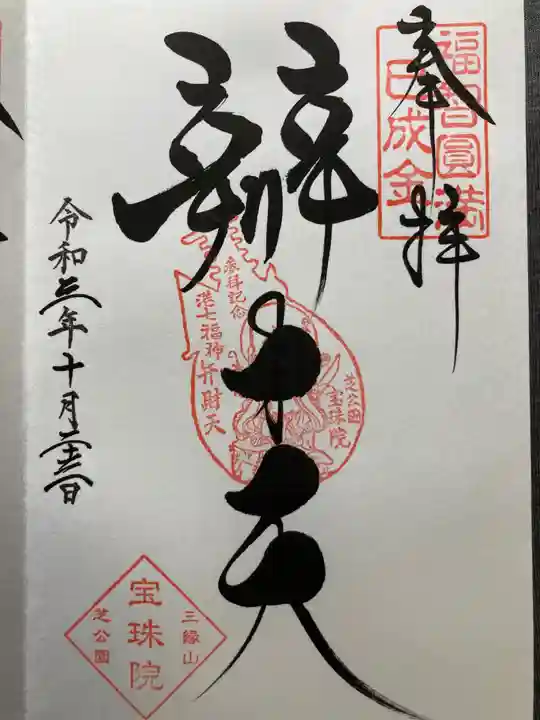 奉拝
福智圓満
巳成金
辨才天
参拝記念
港七福神弁財天
芝公園
宝珠院
令和三年十月二十三日
三縁山
宝珠院
芝公園